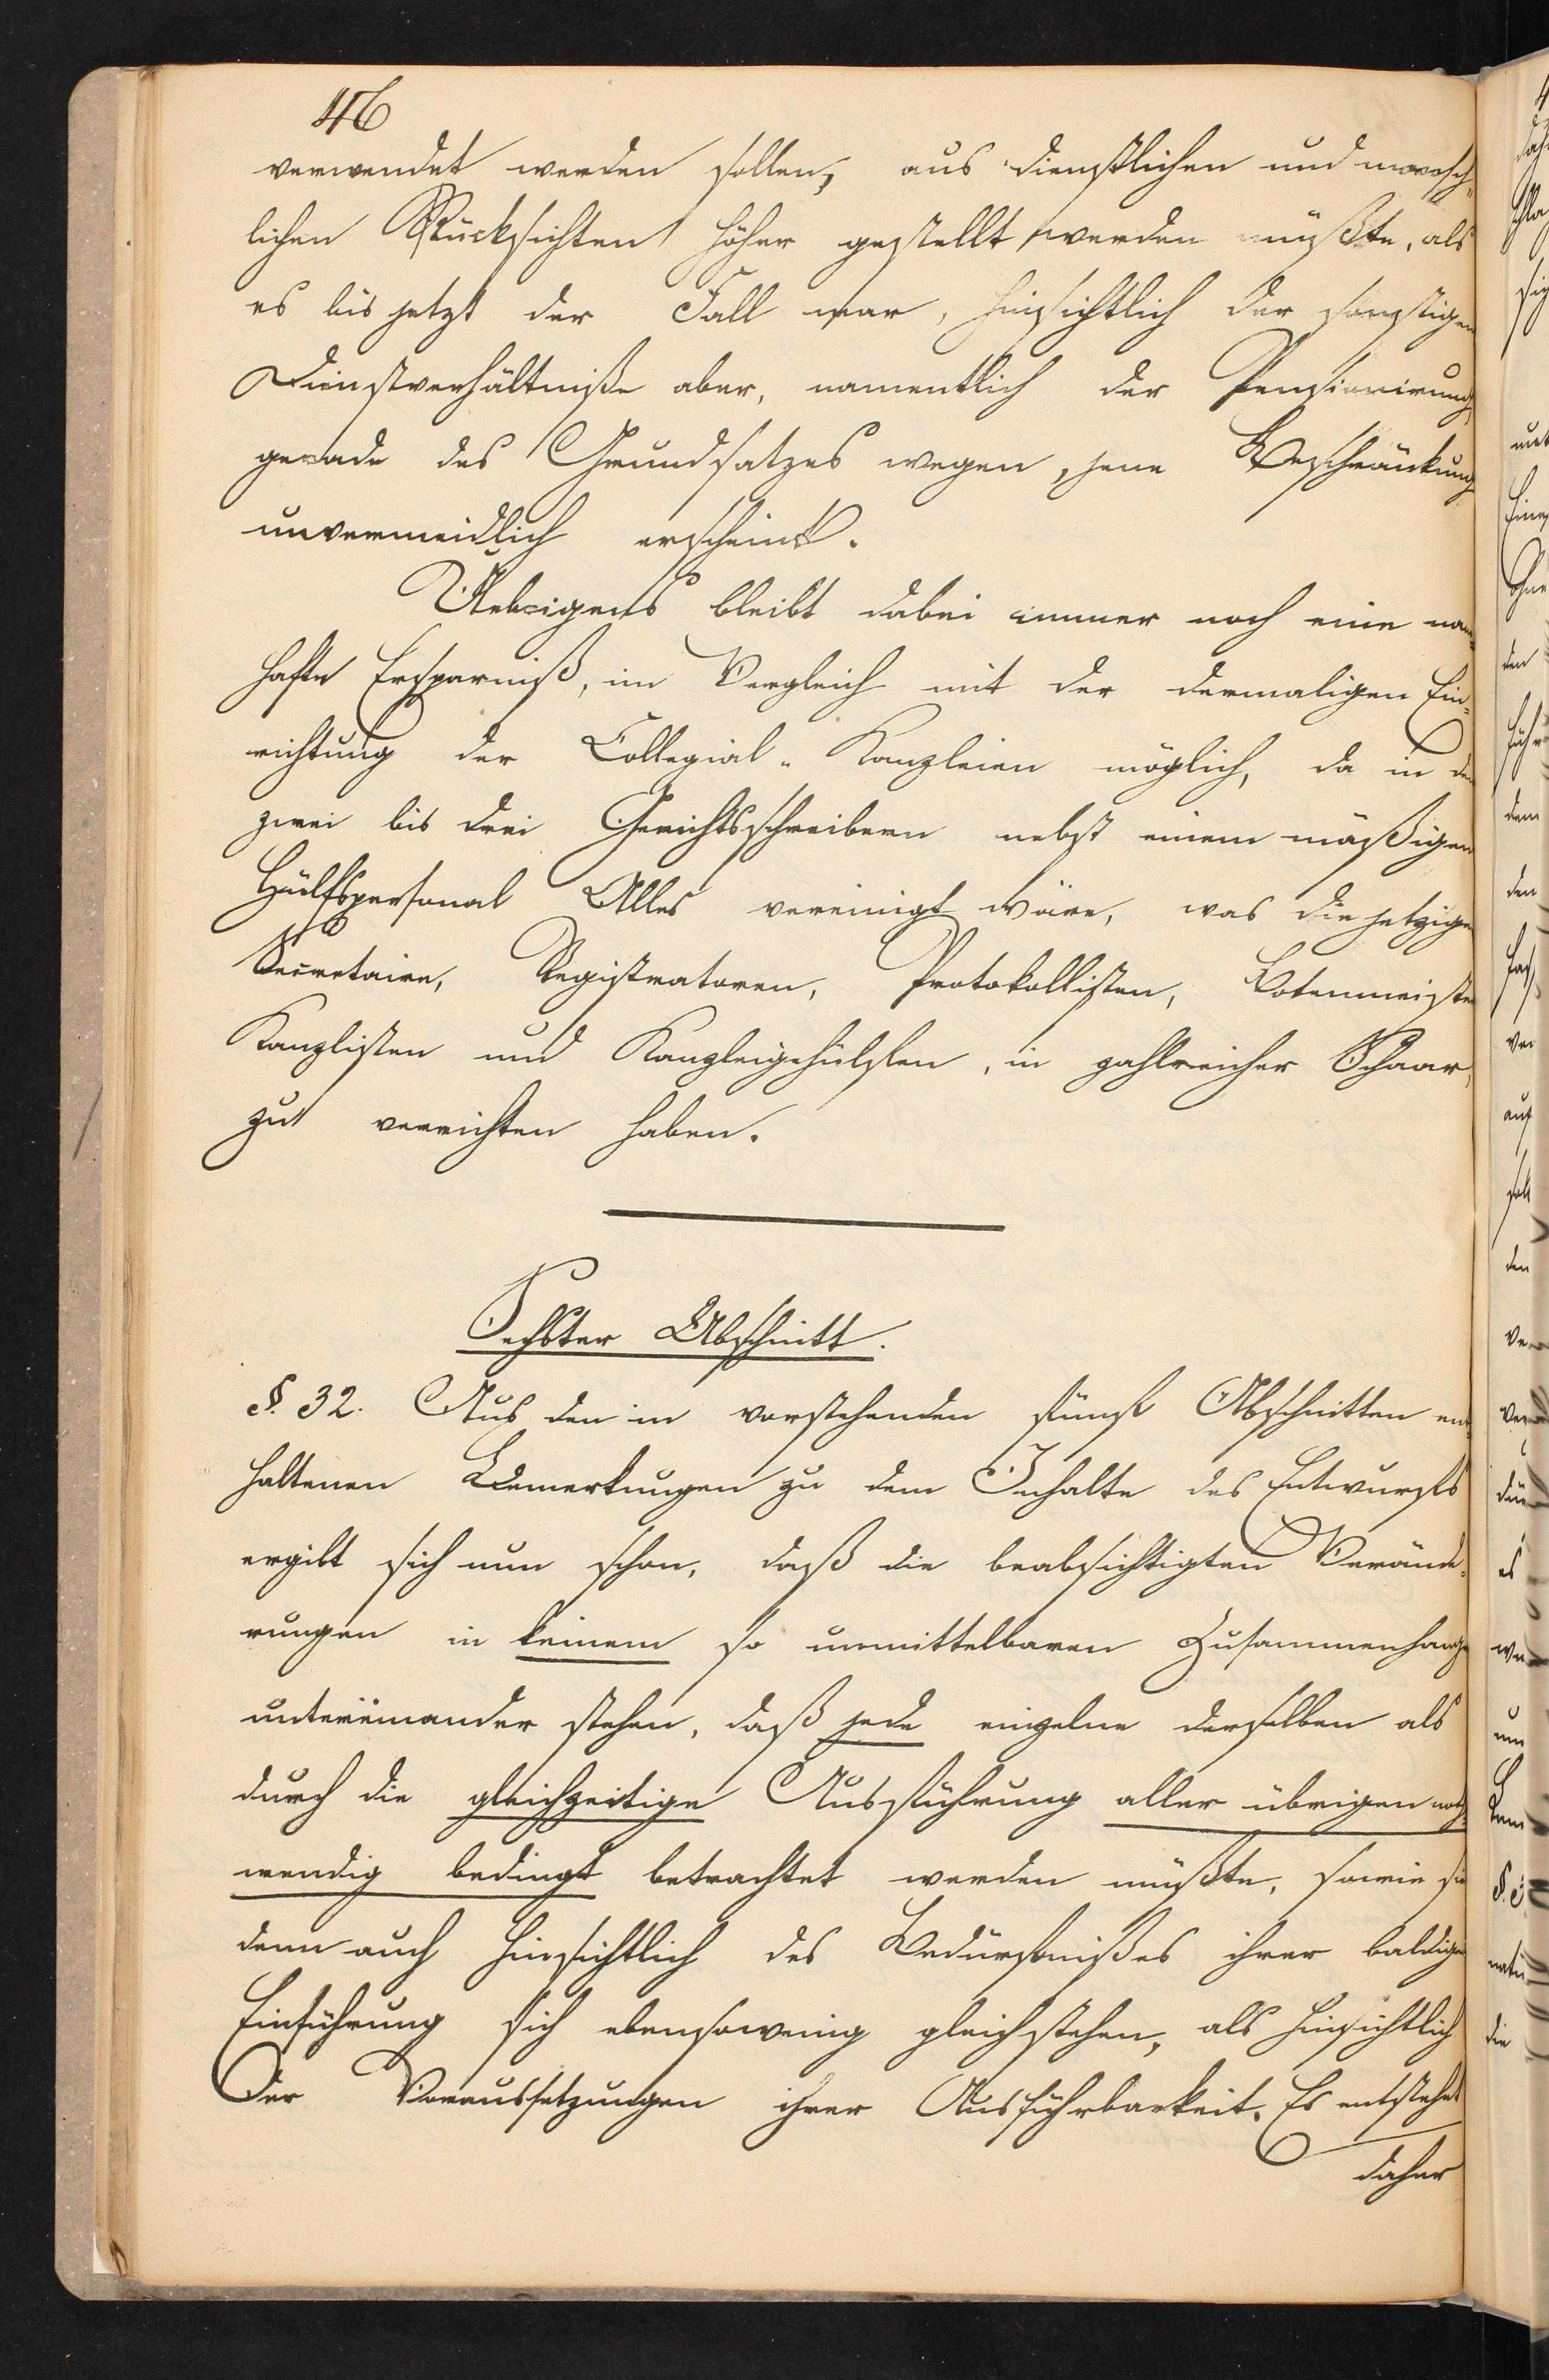 46
verwendet werden sollen, aus dienstlichen und mensch-
lichen Rücksichten höher gestellt werden müßte, als
es bis jetzt der Fall war, hinsichtlich der sonstigen
Dienstverhältniße aber, namentlich der Pensionirung,
gerade des Grundsatzes wegen, jene Beschränkung
unvermeidlich erscheint.
Uebrigens bleibt dabei immer noch eine nam-
hafte Ersparniß, im Vergleich mit der dermaligen Ein-
richtung der Collegial-Kanzleien möglich, da in den
zwei bis drei Gerichtsschreibern nebst einem mäßigen
Hülfspersonal Alles vereinigt wäre, was die jetzigen
Secretaire, Registratoren, Protokollisten, Botenmeister
Kanzlisten und Kanzleigehülfen, in zahlreicher Schaar,
zu verrichten haben.
Sechster Abschnitt.
§. 32. Aus den in vorstehenden fünf Abschnitten ent-
haltenen Bemerkungen zu dem Inhalte des Entwurfs
ergibt sich nun schon, daß die beabsichtigten Verände-
rungen in keinem so unmittelbaren Zusammenhange
untereinander stehen, daß jede einzelne derselben als
durch die gleichzeitige Ausführung aller übrigen noth-
wendig bedingt betrachtet werden müßte, sowie sie
denn auch hinsichtlich des Bedürfnißes ihrer baldigen
Einführung sich ebensowenig gleichstehen, als hinsichtlich
der Voraussetzungen ihrer Ausführbarkeit. Es entsteht
daher